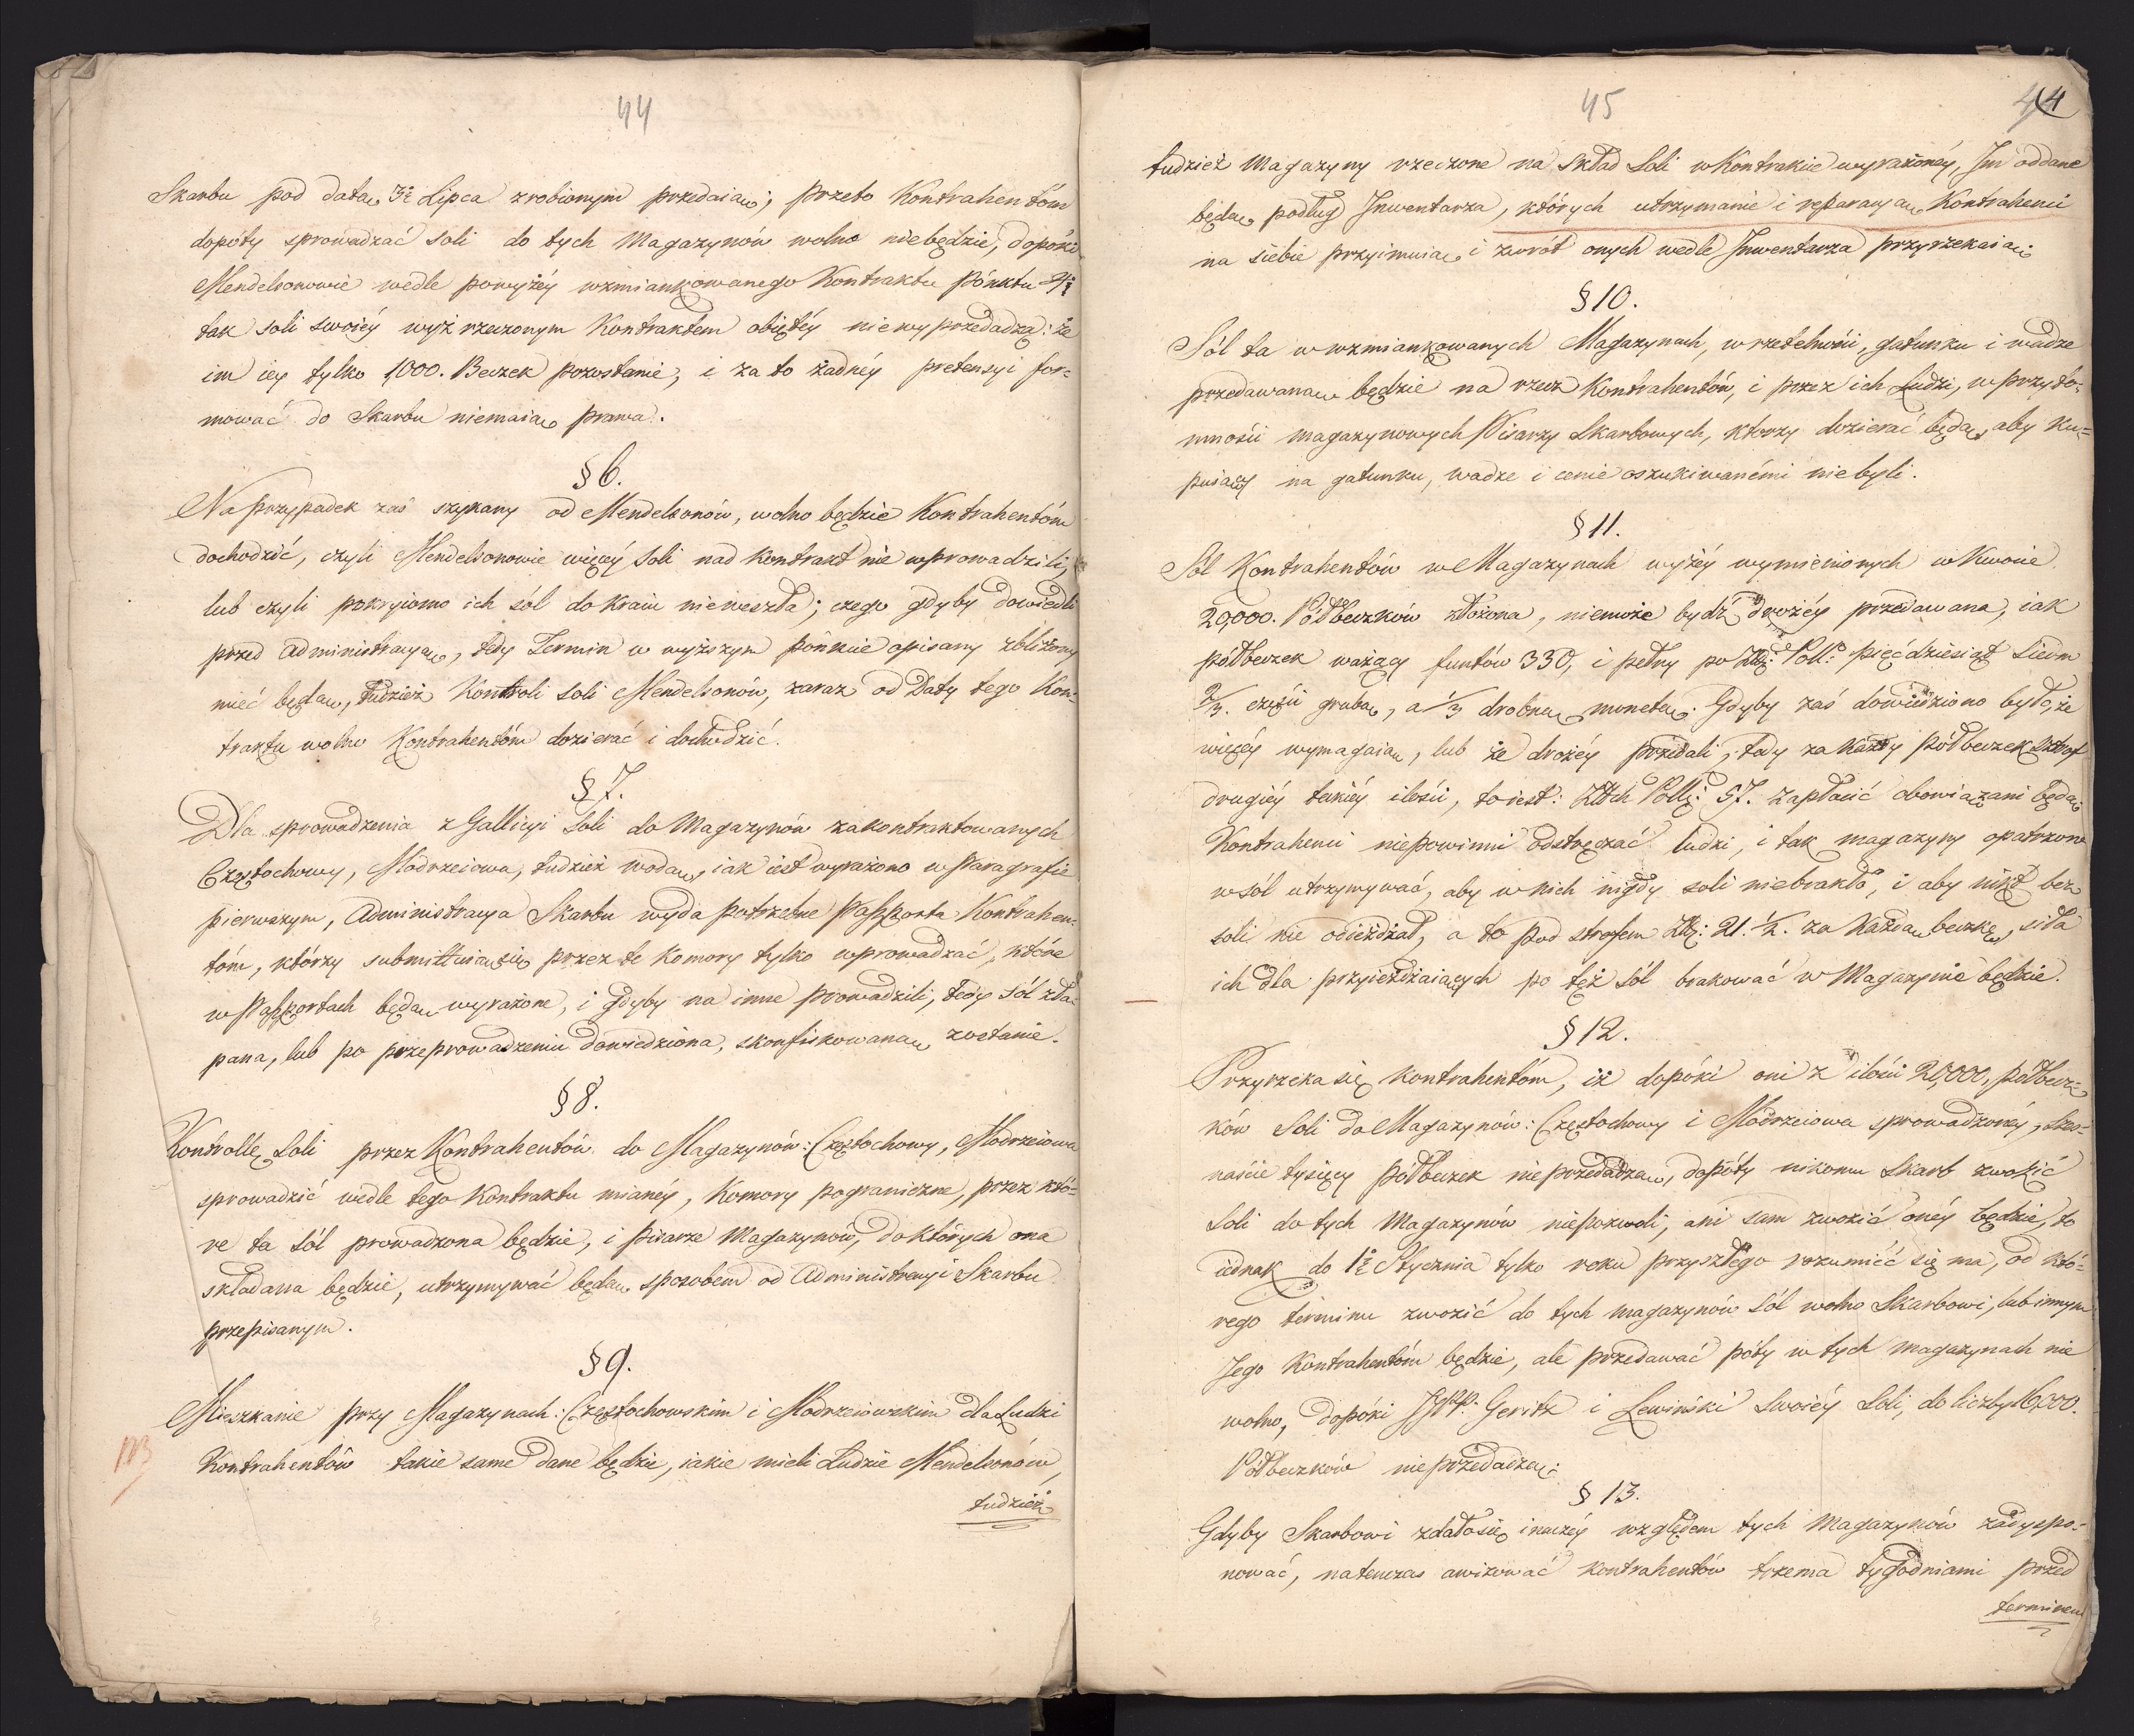 44
Skarbu pod datą 3º Lipca zrobionym przedaią; przeto Kontrahentóm
dopóty sprowadzać soli do tych Magazynów wolno niebędzie, dopóki
Mendelsonowie wedle powyżéy wzmiankowanego Kontraktu pónktu 4º
tak soli swoiéy wyż rzeczonym Kontraktem obiętéy niewyprzedadzą: że
im iey tylko 1,000. Beczek pozostanie, i za to żadnéy pretensyi for=
mować do Skarbu niemaią prawa.
§ 6.
Na przypadek zaś szykany od Mendelsonów, wolno będzie Kontrahentóm
dochodzić, czyli Mendelsonowie więcéy soli nad kontrakt nie wprowadzili,
lub czyli pokryiomo ich sól do kraiu nieweszła; czego gdyby dowiedli
przed Administracyą, tedy Termin w wyższym pónkcie opisany zbliżony
mieć będą, tudzież Kontroli soli Mendelsonów, zaraz od Daty tego Kon=
traktu wolno Kontrahentóm dozierać i dochodzić.
§ 7.
Dla sprowadzenia z Gallicyi Soli do Magazynów zakontraktowanych
Częstochowy, Modrzeiowa, tudzież wodą, iak iest wyrażono w Paragrafie
pierwszym, Administracya Skarbu wyda potrzebne Paszporta Kontrahen=
tóm, którzy submittuią się przez te Komory tylko wprowadzać, które
w Paszportach będą wyrażone, i gdyby na inne prowadzili, tedy sól zła=
pana, lub po przeprowadzeniu dowiedziona, skonfiskowaną zostanie.
§ 8.
Kontrollę Soli przez Kontrahentów do Magazynów: Częstochowy, Modrzeiowa
sprowadzić wedle tego Kontraktu mianéy, Komory pograniczne, przez któ=
re ta sól prowadzona będzie, i Pisarze Magazynów, do których ona
składana będzie, utrzymywać będą sposobem od Administracyi Skarbu
przepisanym.
§ 9.
Mieszkanie przy Magazynach: Częstochowskim i Modrzeiowskim dla Ludzi
Kontrahentów takie same dane będzie, iakie mieli Ludzie Mendelsonów,
NB
tudzież
45
44
tudzież Magazyny rzeczone na skład Soli w Kontrakcie wyrażonéy, Im oddane
będą podług Inwentarza, których utrzymanie i reparacyą Kontrahenci
na siebie przyimuią i zwrot onych wedle Inwentarza przyrzekaią.
§ 10.
Sól ta w wzmiankowanych Magazynach, w rzetelności, gatunku i wadze
przedawaną będzie na rzecz Kontrahentów, i przez ich Ludzi, w przyto=
mności magazynowych Pisarzy Skarbowych, którzy dozierać będą, aby ku=
puiący na gatunku, wadze i cenie oszukiwanémi niebyli.
§ 11.
Sól Kontrahentów w Magazynach wyżéy wymienionych w Kwocie
20,000. Półbeczków złożona, niemoże bydź drożéy przedawana, iak
półbeczek ważący funtów 330, i pełny po Złł: Poll: pięćdziesiąt siedm
2/3. części grubą, a 1/3 drobną monetą. Gdyby zaś dowiedziono było, że
więcéy wymagaią, lub że drożéy przedali, tedy za każdy półbeczek sztraf
drugiéy takiéy ilości, toiest: Złłch Poll: 57. zapłacić obowiązani będą.
Kontrahenci niepowinni odstręczać ludzi, i tak magazyny opatrzone
w sól utrzymywać, aby w nich nigdy soli niebrakło, i aby nikt bez
soli nie odieżdżał, a to pod strofem Złł: 21. 1/2. za Każdą beczkę, siła
ich dla przyieżdżaiących po téż sól brakować w Magazynie będzie.
§ 12.
Przyrzeka się kontrahentóm, iż dopóki oni z ilości 20,000. półbecz=
ków Soli do Magazynów: Częstochowy i Modrzeiowa sprowadzonéy, szes=
naście tysięcy półbeczek nieprzedadzą, dopóty nikomu Skarb zwozić
Soli do tych Magazynów niepozwoli, ani sam zwozić onéy będzie, to
iednak do 1º Stycznia tylko roku przyszłego rozumieć się ma, od któ=
rego terminu zwozić do tych magazynów sól wolno Skarbowi, lub innym
Jego Kontrahentóm będzie, ale przedawać póty w tych magazynach nie
wolno, dopóki JPP. Geritz i Lewiński swoiéy soli, do liczby 16,000.
Półbeczków nieprzedadzą.
§ 13.
Gdyby Skarbowi zdało się inaczéy względem tych Magazynów zadyspo=
nować, natenczas awizować kontrahentów trzema tygodniami przed
terminem